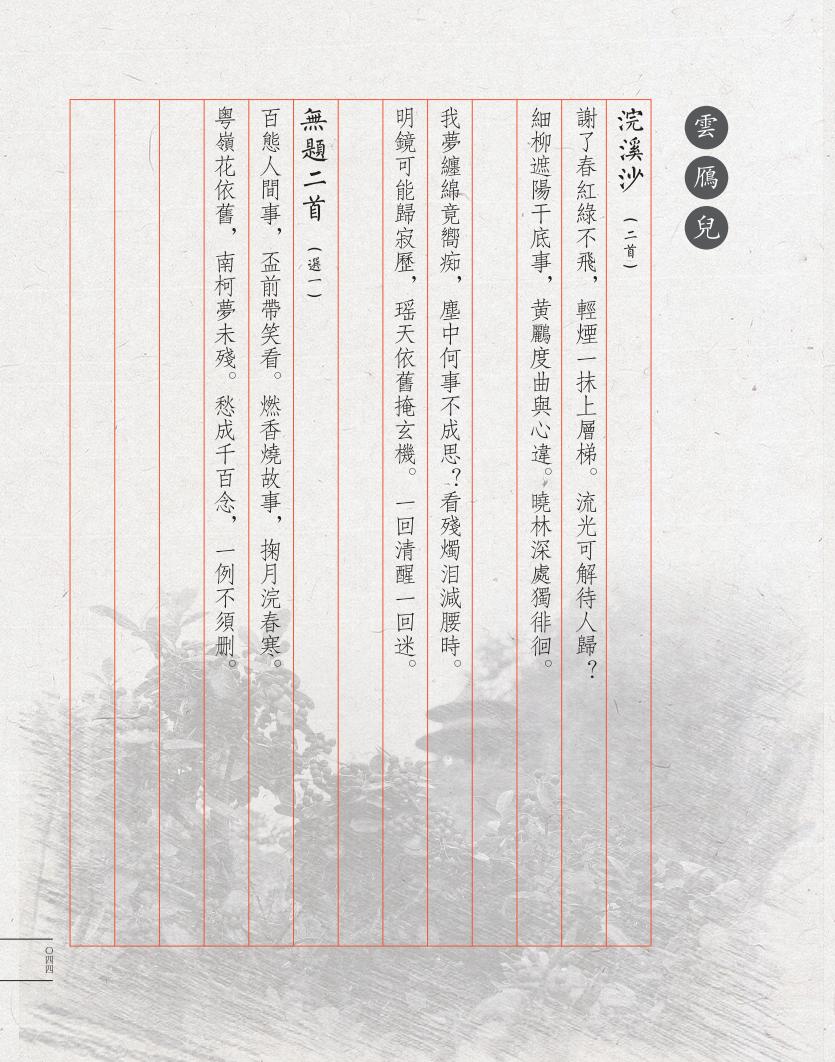 雲鴈兒
浣溪沙(二首)
謝了春紅綠不飛，輕煙一抹上層梯。流光可解待人歸？
細柳遮陽干底事，黄鸝度曲與心違。曉林深處獨徘徊。
我夢纏綿竟嚮痴，塵中何事不成思？看殘燭泪減腰時。
明鏡可能歸寂歷，瑶天依舊掩玄機。一回清醒一回迷。
無題二首(選一)
百態人間事，盃前帶笑看。燃香燒故事，掬月浣春寒。
粤嶺花依舊，南柯夢未殘。愁成千百念，一例不須删。
〇四四